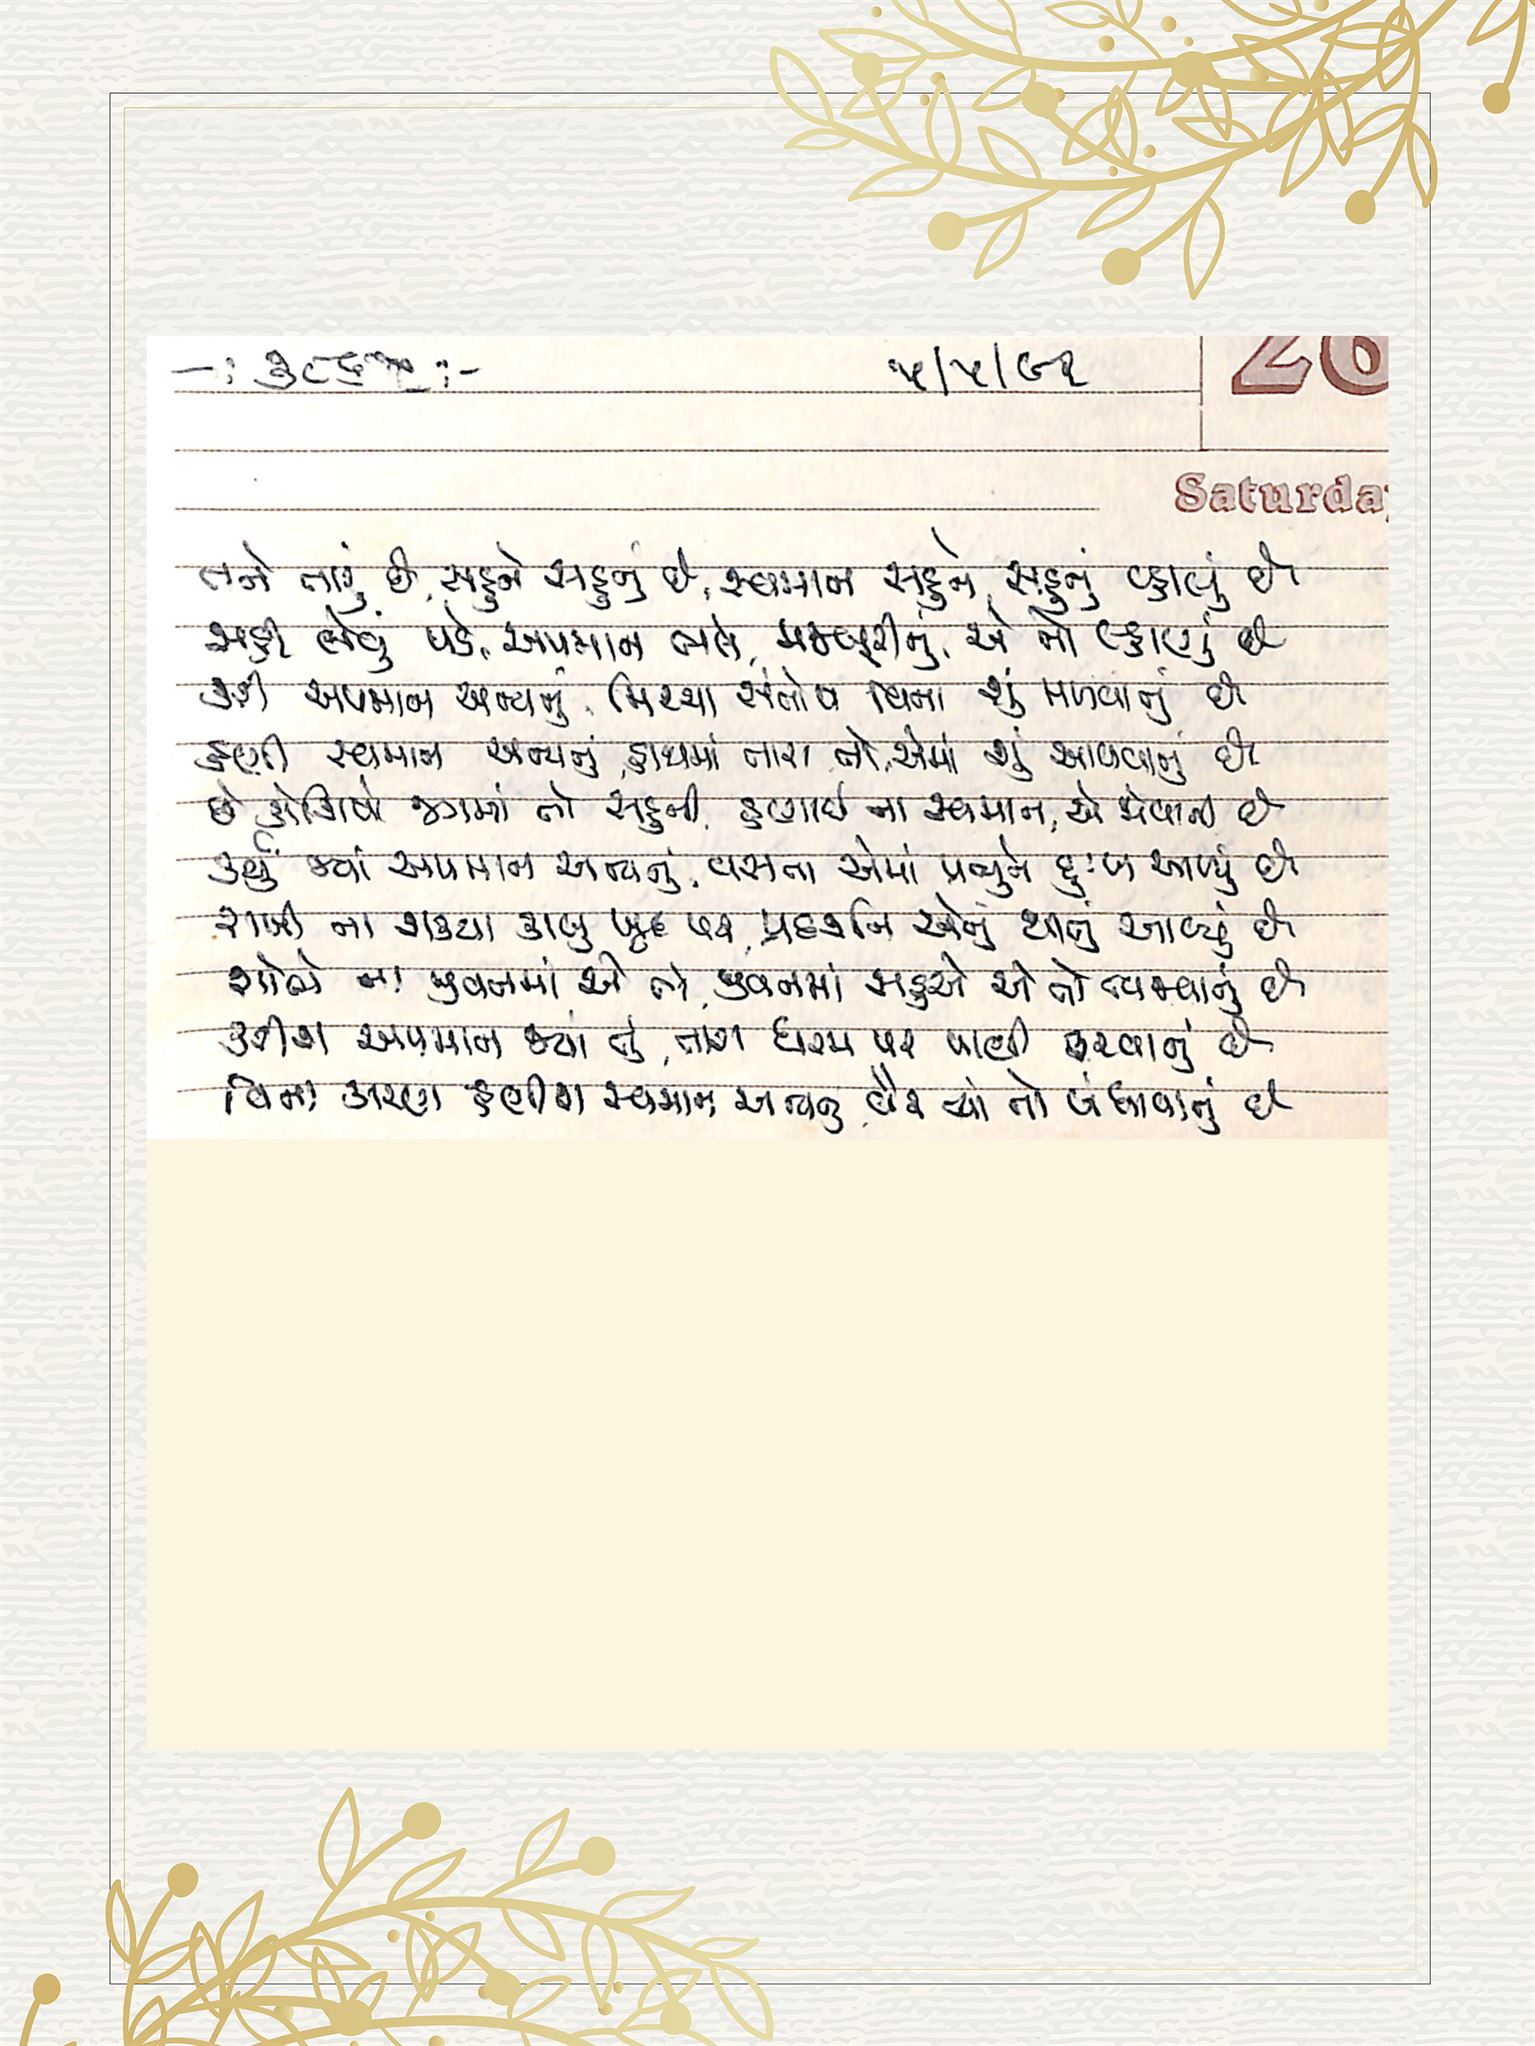 ૫/૫/૯૨
26
Saturda
તને તારું છે, સહુને સહુનું છે, સ્વમાન સહુને સહુનું વ્હાલું છે
સહી લેવું પડે, અપમાન ભલે, મજબૂરીનું, એ તો લ્હાણું છે
કરી અપમાન અન્યનું, મિથ્યા સંતોષ વિના શું મળવાનું છે
હણી સ્વમાન અન્યનું, હાથમાં તારા તો, એમાં શું આવવાનું છે
છે કોશિષો જગમાં તો સહુની, હણાઈ ના સ્વમાન, એ જોવાની છે
કર્યું જ્યાં અપમાન અન્યનું, વસતા એમાં પ્રભુને દુઃખ આપ્યું છે
રાખી ના શક્યા કાબુ ખુદ પર, પ્રદર્શન એનું થાતું આવ્યું છે
શોભે ના જીવનમાં એ તો, જીવનમાં સહુએ એ તો ત્યજવાનું છે
કરીશ અપમાન જ્યાં તું, તારા ધરમ પર પાણી ફરવાનું છે
વિના કારણ હણીશ સ્વમાન અન્યનું, વૈર ત્યાં તો બંધાવાનું છે